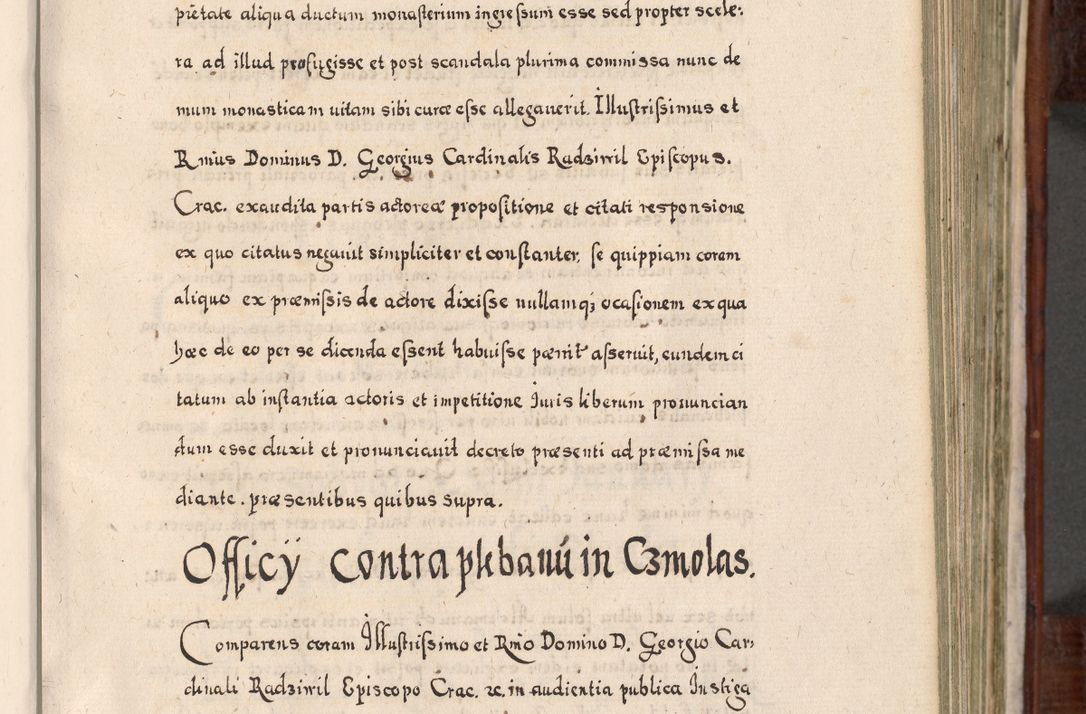 pietate aliqua ductum monasterium ingressum esse sed propter scele-
ra ad illud profugisse et post scandala plurima commissa nunc de
mum monasticam uitam sibi curæ esse allegauerit. Illustrissimus et
Rmus Dominus D. Georgius Cardinalis Radziwil Episcopus.
Crac. exaudita partis actoreæ propositione et citati responsione
ex quo citatus negauit simpliciter et constanter, se quippiam coram
aliquo ex præmissis de actore dixisse nullamqꝫ ocasionem ex qua
hæc de eo per se dicenda essent habuisse asseruit, eundem ci
tatum ab instantia actoris et impetitione Iuris liberum pronuncian
dum esse duxit et pronunciauit decreto præsenti ad præmissa me
diante. præsentibus quibus supra.
Officÿ contra plebanū in Czmolas.
Comparens coram Illustrissimo et Rmo Domino D. Georgio Car-
dinali Radziwil Episcopo Crac. ꝛc. in audientia publica Instiga